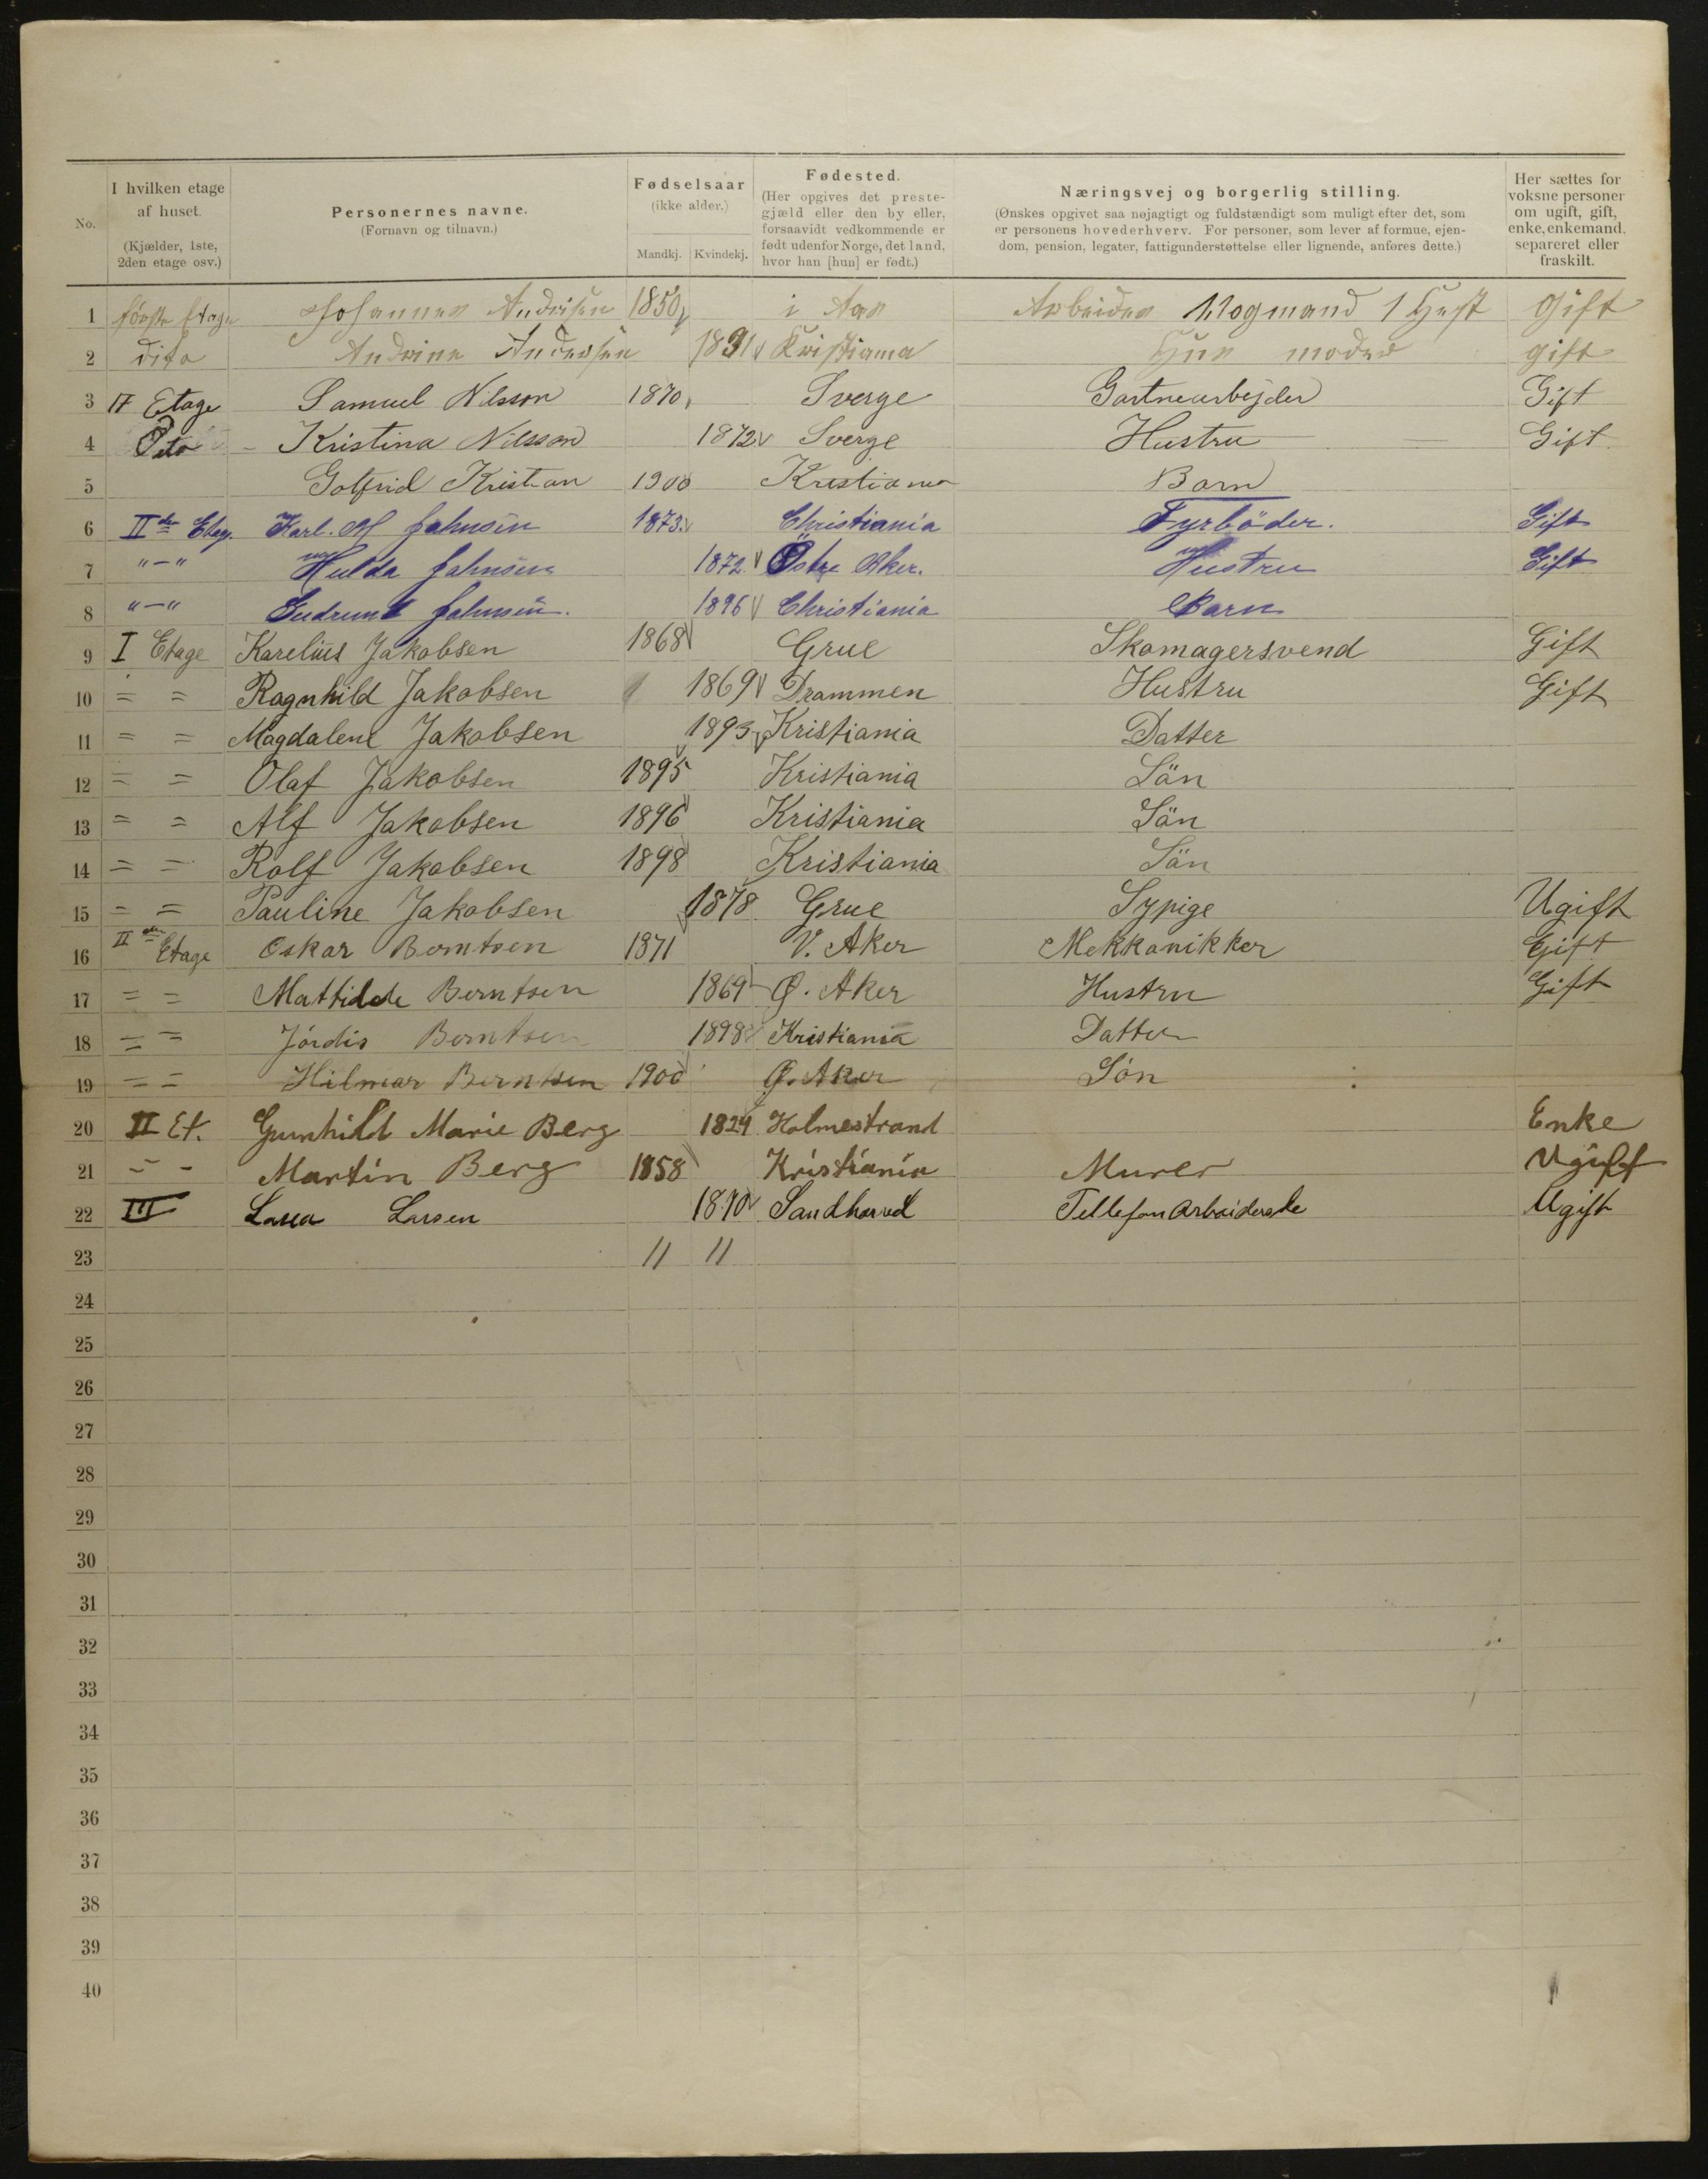 No.
I hvilken etage af huset. (Kjælder, 1ste, 2den etage osv.)
Personernes navne. (Fornavn og tilnavn.)
Fødselsaar (ikke alder.) Mandkj. Kvindekj.
Fødested. (Her opgives det prestegjæld eller den by eller, forsaavidt vedkommende er født udenfor Norge, det land, hvor han [hun] er født.)
Næringsvej og borgerlig stilling. (Ønskes opgivet saa nøjagtigt og fuldstændigt som muligt efter det, som er personens hovederhverv. For personer, som lever af formue, ejendom, pension, legater, fattigunderstøttelse eller lignende, anføres dette.)
Her sættes for voksne personer om ugift, gift, enke, enkemand, separeret eller fraskilt.
1 første Etage Johannes Andersen 1850 i Aas Arbeider 1 Hest Gift
2 dito Andrine Andersen Kristiania gift
3 Etage Samuel Nilsson 1870 Sverge Gartnerarbejder Gift
4 Dito Kristina Nilsson 1872 Sverge Hustru Gift
5 Gotfrid Kristian 1900 Kristiania Barn
6 IIden Etag. Karl. M Jahnsen 1873. Christiania Fyrböder. Gift
7 "-" Hulda Jahnsen 1872. Östre Aker. Hustru Gift
8 "-" Gudrund Jahnsen. 1896 Christiania Barn
9 I Etage Karelius Jakobsen 1868 Grue Skomagersvend Gift
10 = = Ragnhild Jakobsen 1869 Drammen Hustru Gift
11 = = Magdalene Jakobsen 1893 Kristiania Datter
12 = = Olaf Jakobsen 1895 Kristiania Sön
13 = = Alf Jakobsen 1896 Kristiania Sön
14 = = Rolf Jakobsen 1898 Kristiania Sön
15 = = Pauline Jakobsen 1878 Grue Sypige Ugift
16 IIden Etage Oskar Berntsen 1871 V. Aker Mekkanikker Gift
17 = = Mathilde Berntsen 1869 Ø. Aker Hustru Gift
18 = = Jórdis Berntsen 1898 Kristiania Datter
19 = = Hilmar Berntsen 1900 Ø. Aker Són
20 II Et. Gunhild Marie Berg 1824 Holmestrand Enke
21 - - Martin Berg 1858 Kristiania Murer Ugift
22 III Larsen 1870 Sandherred Ugift
23 11 11
24
25
26
27
28
29
30
31
32
33
34
35
36
37
38
39
40